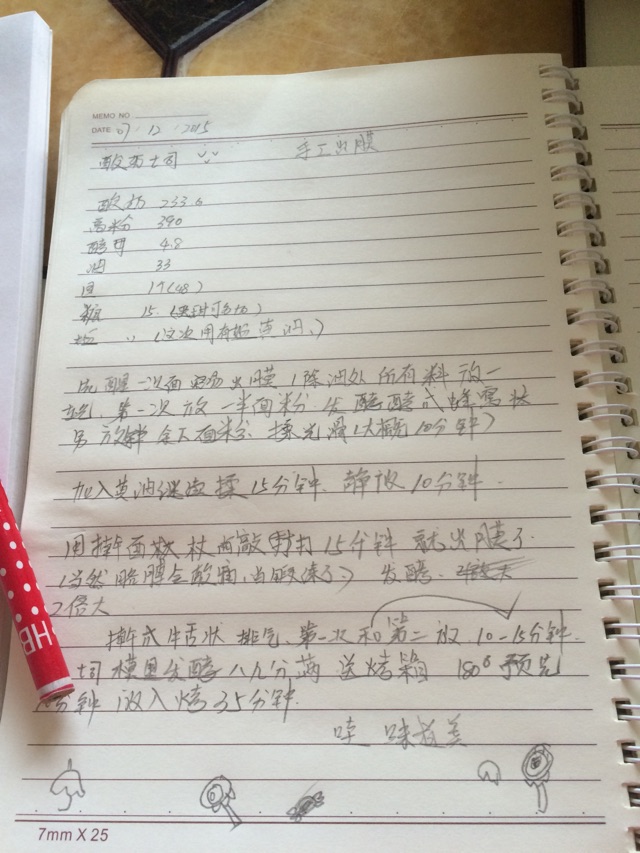 MEMO NO
DATE 07 / 12 / 2015
酸奶土司 手工出膜
酸奶 233.6
高粉 390
酵母 4.8
油 33
蛋 19(48)
糖 15.
盐 (这次用有盐黄油、)
一次面 出膜(除油外所有料放一
起、第一次放一半面粉. 发酵酵成蜂窝状
另 放 余下面粉. 揉光滑(大概10分钟)
加入黄油继续揉15分钟. 静放10分钟.
用擀面杖 敲打15分钟 就出膜了.
(当然胳膊会酸痛,当锻炼了、) 发酵.
2倍大
擀成牛舌状 排气、第一次和第二放 10-15分钟.
土司模里发酵八九分满 送烤箱 180° 预先
分钟 放入烤35分钟.
哇 味 美
HB
7mm X 25